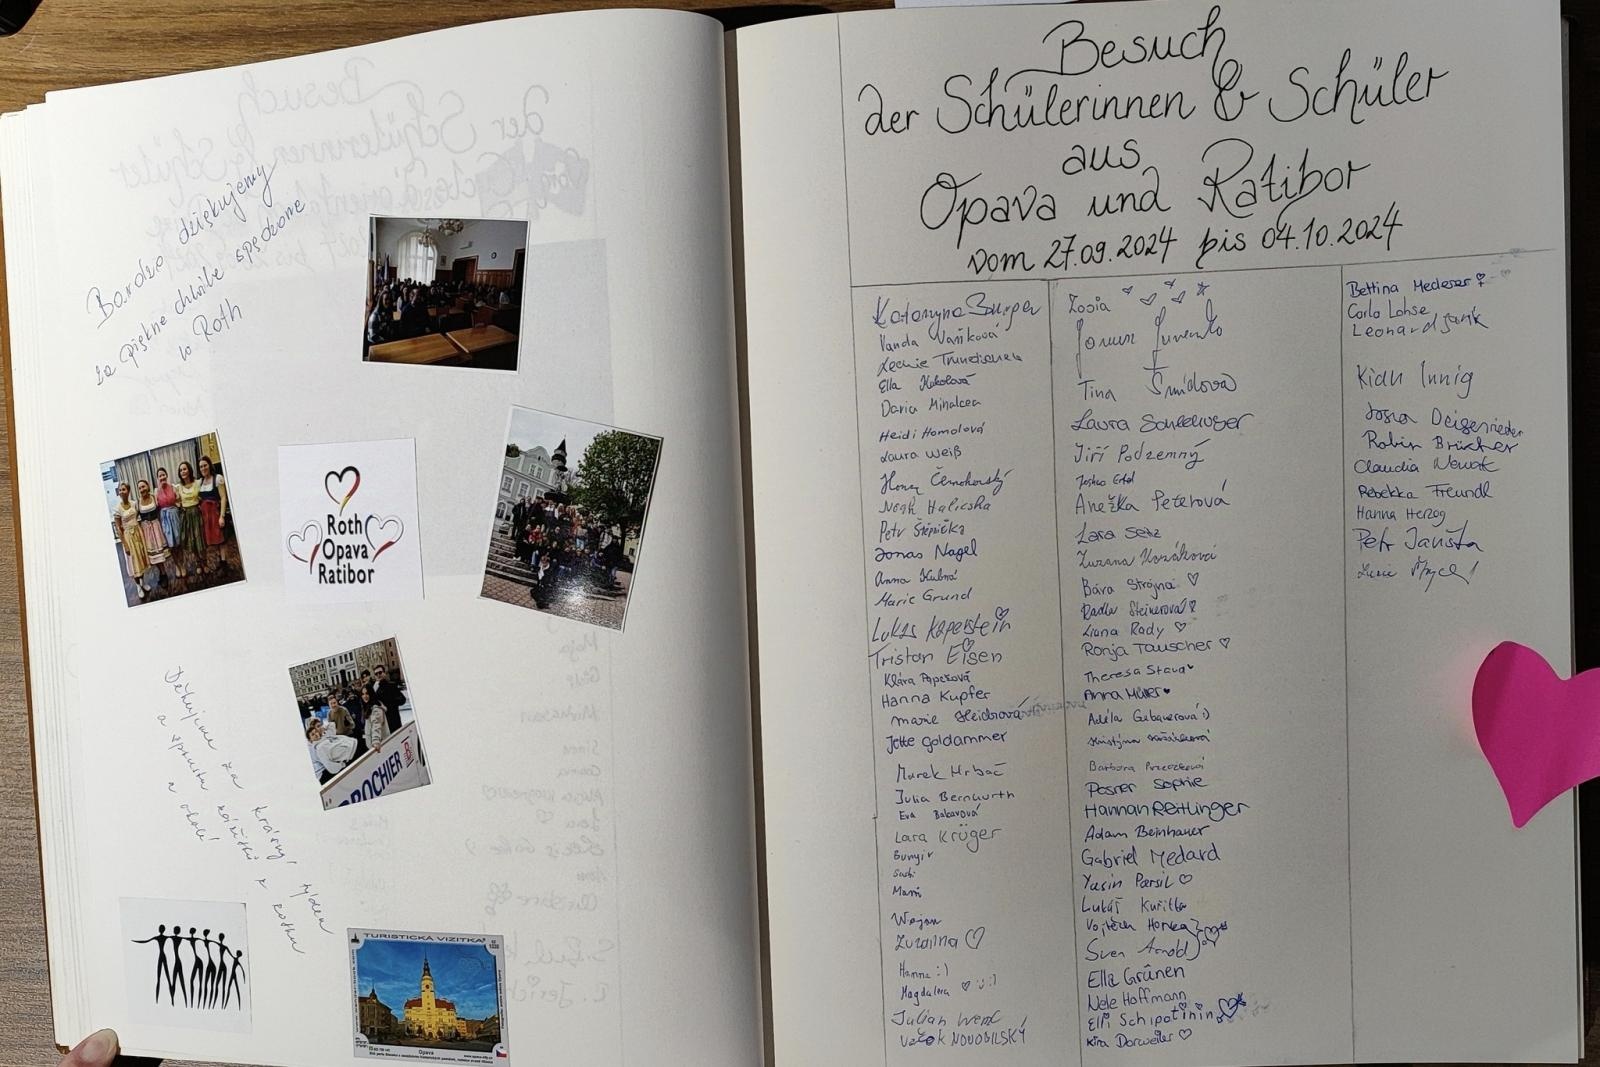 Bardzo dziękujemy
za piękne chwile spędzone
w Roth
Roth
Opava
Ratibor
BROCHIER
Děkujeme za krásný týden
a spoustu zážitků z Rothu
a okolí
TURISTICKÁ VIZITKA
Opava
Besuch
der Schülerinnen & Schüler
aus
Opava und Ratibor
vom 27.09.2024 bis 04.10.2024
Katarzyna
Vanda Vaňková
Ella Kokolová
Daria Mihalcea
Heidi Homolová
Laura Weiß
Černohorský
Noah Halicska
Petr Štěpnička
Jonas Nagel
Anna Kubná
Marie Grund
Lukas Kaperstein
Tristan Eisen
Klára Popelková
Hanna Kupfer
Marie
Jette Goldammer
Marek Hrbáč
Julia Bernwurth
Eva Babarová
Lara Krüger
Sashi
Wojan
Zuzanna ♡
Hanna :)
Magdalena ♡ :) :)
Julian
NOVOBILSKÝ
Zosia
Tina Šmídová
Laura
Jiří Podzemný
Joshua Ertel
Anežka Peterová
Lara Seitz
Zuzana Kozáková
Bára Strojná ♡
Radka Steinerová ♡
Liana Rady ♡
Ronja Tauscher ♡
Theresa Stava
Anna Müller ♥
Adéla Gebauerová :)
Barbora
Posner Sophie
Hannah Reitlinger
Adam Beinhauer
Gabriel Medard
Yasin Parsil ♡
Lukáš Kuřitka
Vojtěch Horka
Sven Arnold
Ella Grünen
Nele Hoffmann
Elli Schipatinin
Kira Dorweiler ♡
Bettina Mederer
Carlo Lohse
Leonard
Kidn Innig
Deigenrieder
Robin Brücher
Claudia Nowak
Rebekka Freundl
Hanna Herzog
Petr Janšta
Lucie